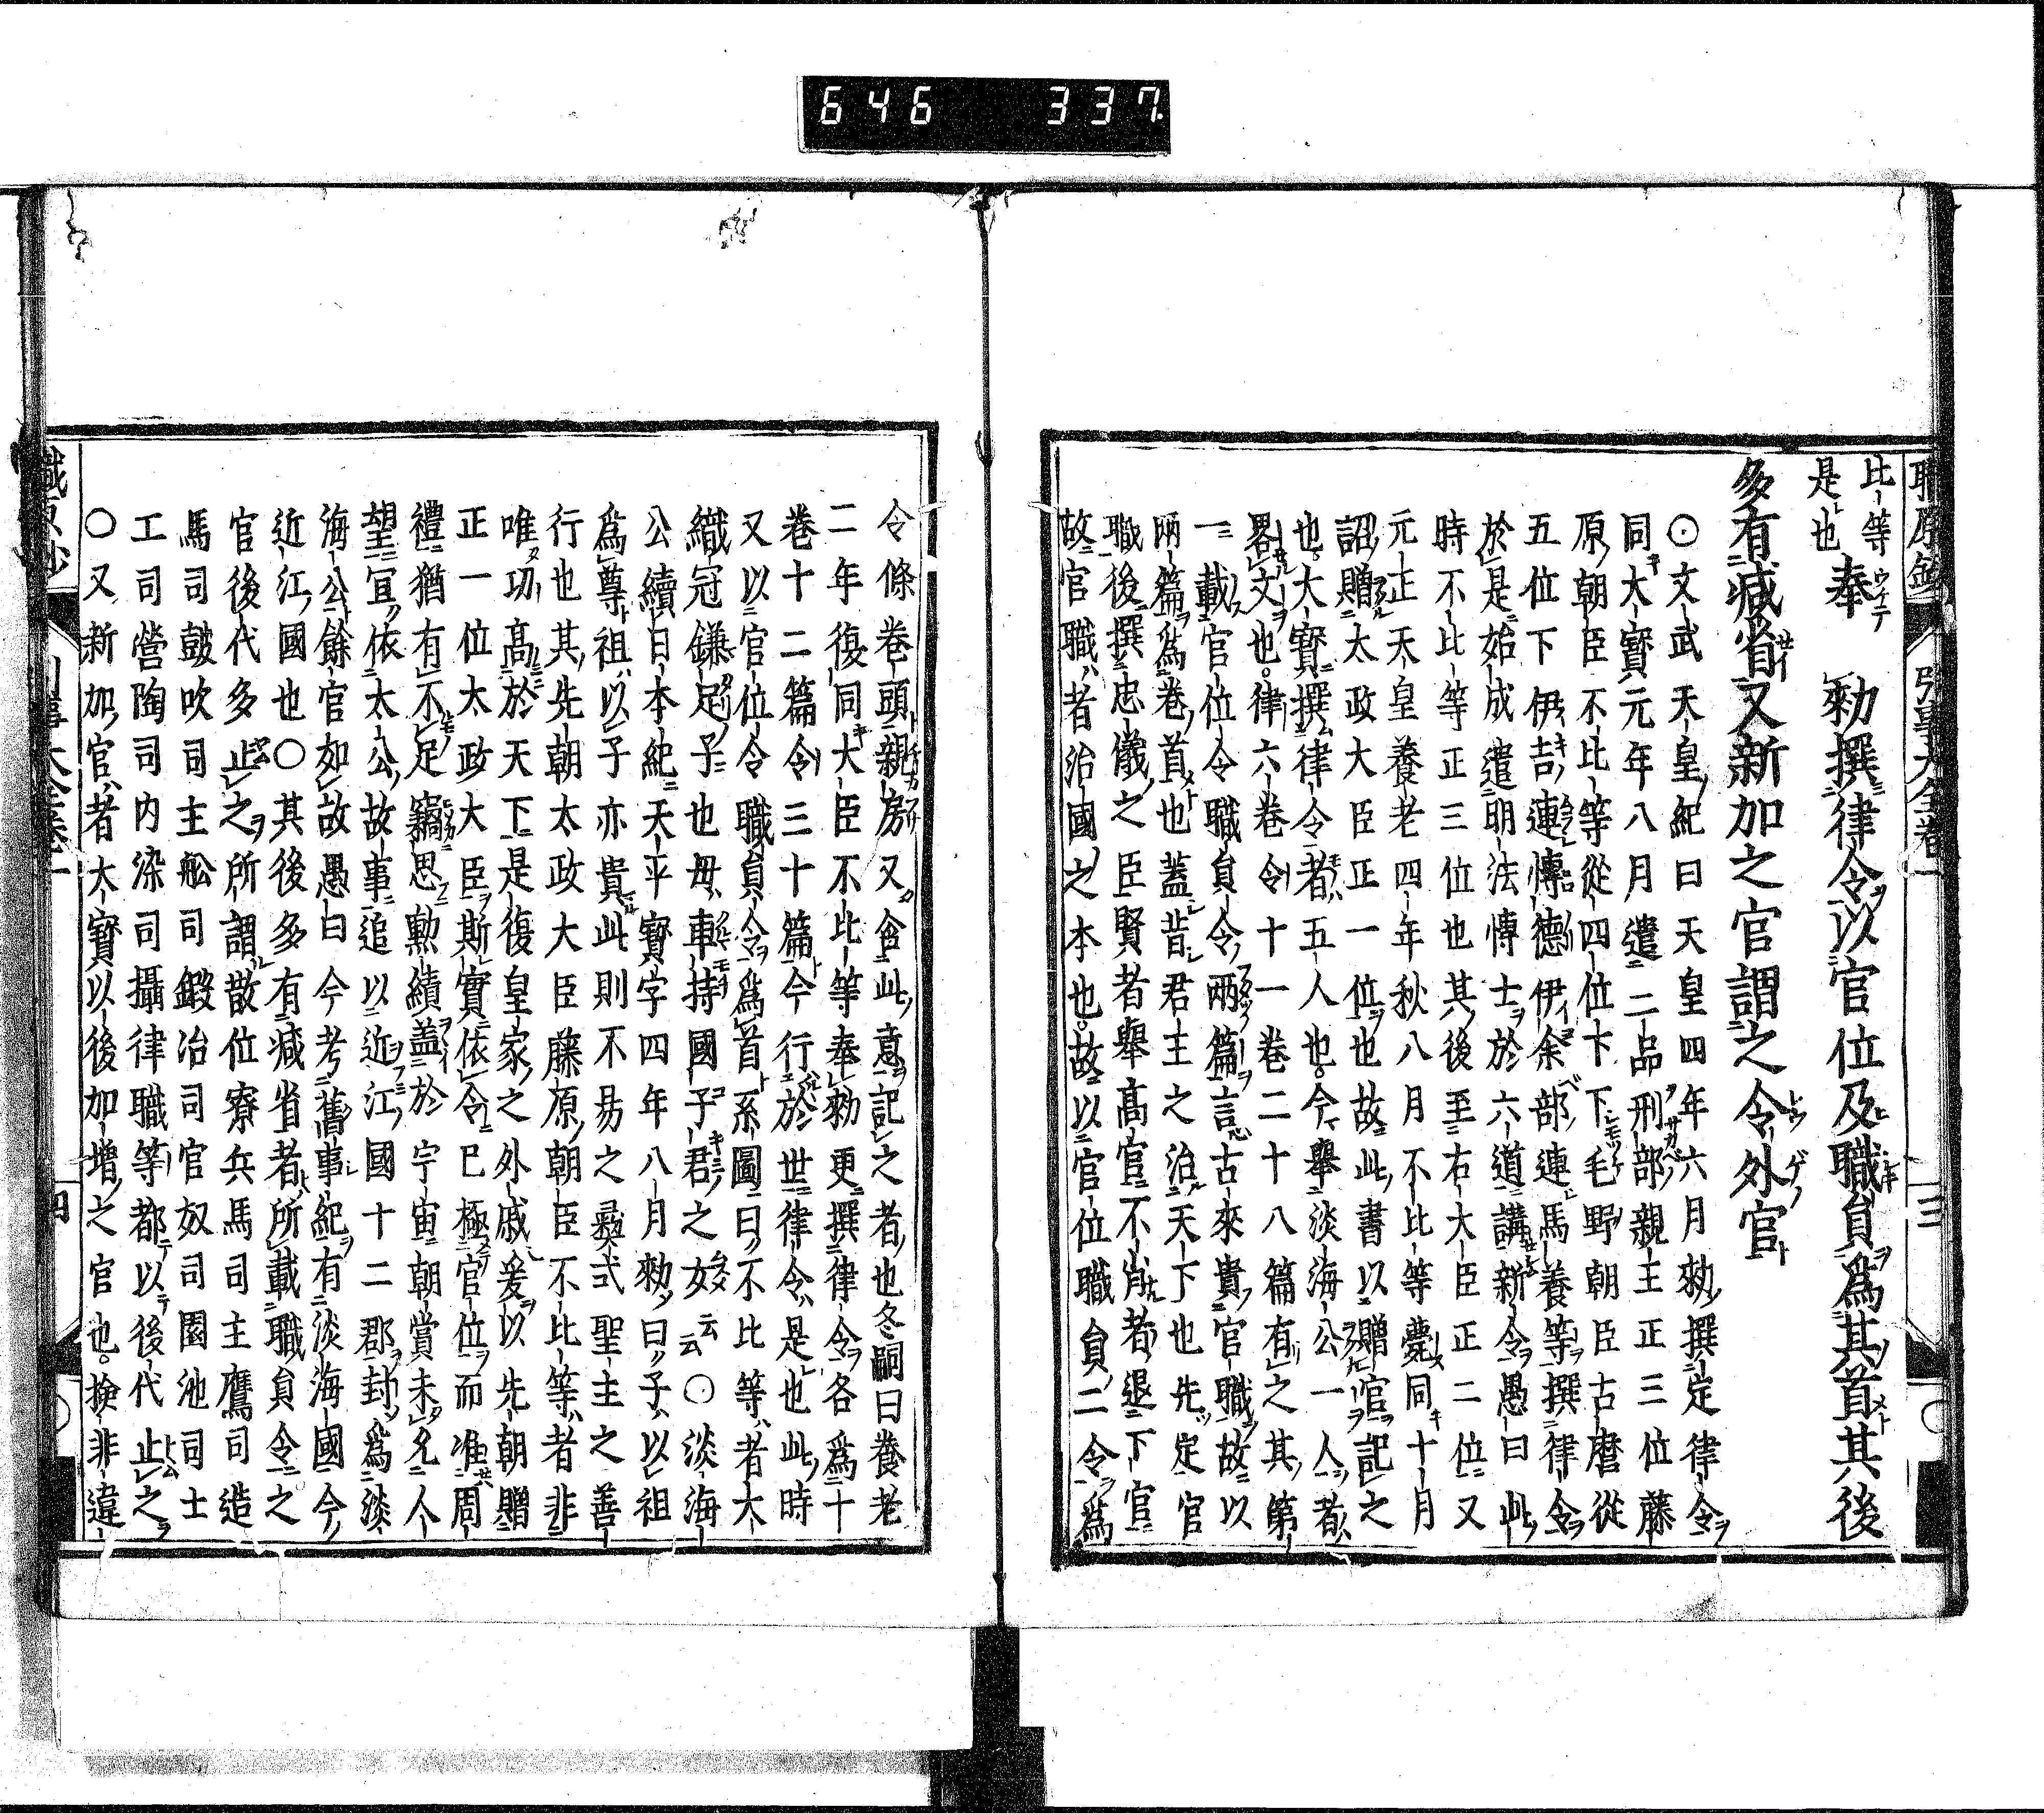 646 337.
職原鈔 引事大全卷一 三
比等
是也 奉 勅撰律令以官位及職員爲其首其後
多有減省又新加之官謂之令外官
○文武天皇紀曰天皇四年六月勅撰定律令
同大寶元年八月遣二品刑部親王正三位藤
原朝臣不比等從四位下下毛野朝臣古麿從
五位下伊吉連博德伊余部連馬養等撰律令
於是始成遣明法博士於六道講新令愚曰此
時不比等正三位也其後至右大臣正二位又
元正天皇養老四年秋八月不比等薨同十月
詔贈太政大臣正一位也故此書以贈官記之
也大寶撰律令者五人也今舉淡海公一人者
畧文也律六卷令十一卷二十八篇有之其第
一載官位令職員令兩篇言古來貴官職故以
兩篇爲卷首也蓋昔君主之治天下也先定官
職後撰忠儀之臣賢者舉高官不肖者退下官
故官職者治國之本也故以官位職員二令爲
令條卷頭親房又含此意記之者也冬嗣曰養老
二年復同大臣不比等奉勅更撰律令各爲十
卷十二篇令三十篇今行於世律令是也此時
又以官位令職員令爲首系圖曰不比等者大
織冠鎌足子也母車持國子君之女云云○淡海
公續日本紀天平寶字四年八月勅曰子以祖
爲尊祖以子亦貴此則不易之彛式聖主之善
行也其先朝太政大臣藤原朝臣不比等者非
唯功高於天下是復皇家之外戚爰以先朝贈
正一位太政大臣斯實依令已極官位而准周
禮猶有不足竊思勲績盖於宇宙朝賞未允人
望宜依太公故事追以近江國十二郡封爲淡
海公餘官如故愚曰今考舊事紀有淡海國今
近江國也○其後多有減省者所載職員令之
官後代多止之所謂散位寮兵馬司主鷹司造
馬司鼓吹司主舩司鍛冶司官奴司園池司士
工司營陶司内染司攝律職等都以後代止之
○又新加官者大寶以後加增之官也撿非違
職原鈔 引事大全卷一 四